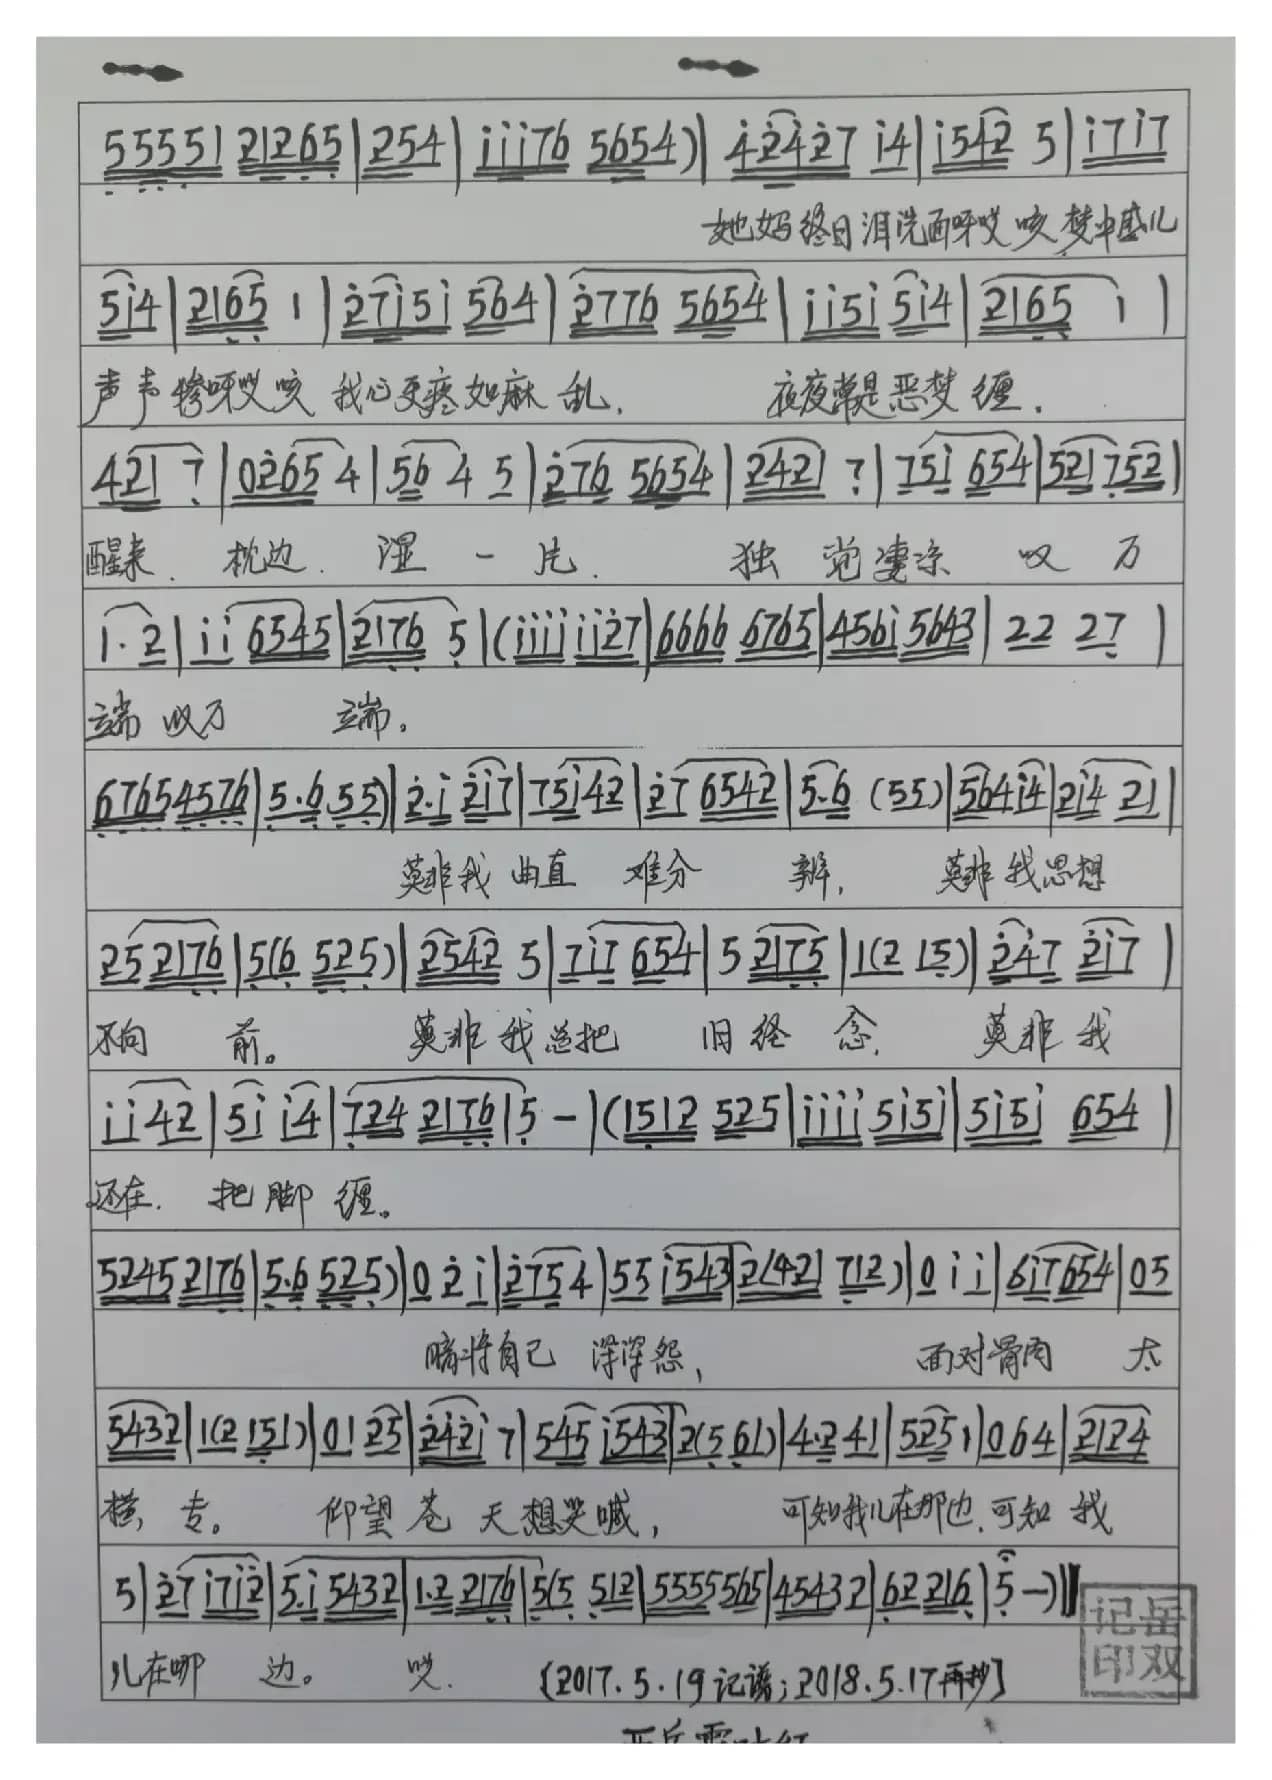 5 5 5 5 1 2 1 2 6 5 | 2 5 4 | i i i 7 6 5 6 5 4 ) | 4 2 4 2 7 i 4 | i 5 4 2 5 | i 7 i 7
她妈终日泪洗面呀哎咳梦中感儿
5 i 4 | 2 1 6 5 1 | 2 7 i 5 i 5 6 4 | 2 7 7 6 5 6 5 4 | i i 5 i 5 i 4 | 2 1 6 5 1 |
声声惨呀哎咳我心更疼如麻乱, 夜夜常是恶梦缠.
4 2 1 7 | 0 2 6 5 4 | 5 6 4 5 | 2 7 6 5 6 5 4 | 2 4 2 1 7 | 7 5 i 6 5 4 | 5 2 1 7 5 2 |
醒来. 枕边. 湿一片. 独觉凄凉叹万
1 · 2 | i i 6 5 4 5 | 2 1 7 6 5 | ( i i i i i i 2 7 | 6 6 6 6 6 7 6 5 | 4 5 6 i 5 6 4 3 | 2 2 2 7 |
端叹万端。
6 7 6 5 4 5 7 6 | 5 · 6 5 5 ) | 2 · i 2 i 7 | 7 5 i 4 2 | 2 7 6 5 4 2 | 5 · 6 ( 5 5 ) | 5 6 4 i 4 | 2 i 4 2 1 |
莫非我曲直难分辨, 莫非我思想
2 5 2 1 7 6 | 5 ( 6 5 2 5 ) | 2 5 4 2 5 | 7 i 7 6 5 4 | 5 2 1 7 5 | 1 ( 2 1 5 ) | 2 4 7 2 i 7 |
不向前。 莫非我总把旧经念, 莫非我
i i 4 2 | 5 i i 4 | 7 2 4 2 1 7 6 | 5 - | ( 1 5 1 2 5 2 5 | i i i i 5 i 5 i | 5 i 5 i 6 5 4 |
还在. 把脚缠。
5 2 4 5 2 1 7 6 | 5 · 6 5 2 5 ) | 0 2 i | 2 7 5 4 | 5 5 i 5 4 3 | 2 ( 4 2 1 7 1 2 ) | 0 i i | 6 i 7 6 5 4 | 0 5
暗将自己深深怨, 面对骨肉太
5 4 3 2 | 1 ( 2 1 5 1 ) | 0 1 2 5 | 2 4 2 i 7 | 5 4 5 i 5 4 3 | 2 ( 5 6 1 ) | 4 · 2 4 1 | 5 2 5 1 | 0 6 4 | 2 1 2 4
横专。 仰望苍天想哭喊, 可知我儿在那边, 可知我
5 | 2 7 i 7 i 2 | 5 · i 5 4 3 2 | 1 · 2 2 1 7 6 | 5 ( 5 5 1 2 | 5 5 5 5 5 6 5 | 4 5 4 3 2 | 6 2 2 1 6 | 5 - ) ‖
儿在哪边。 哎. [2017.5.19记谱;2018.5.17再抄]
岳双记印